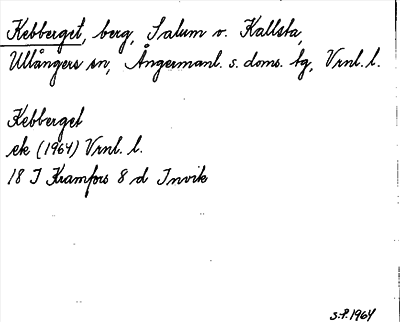 Kebberget, berg, Salum o. Kallsta,
Ullångers sn, Ångermanl. s. doms. tg, Vrnl. l.
Kebberget
ek (1964) Vrnl. l.
18 I Kramfors 8 d Invik
S.F. 1964